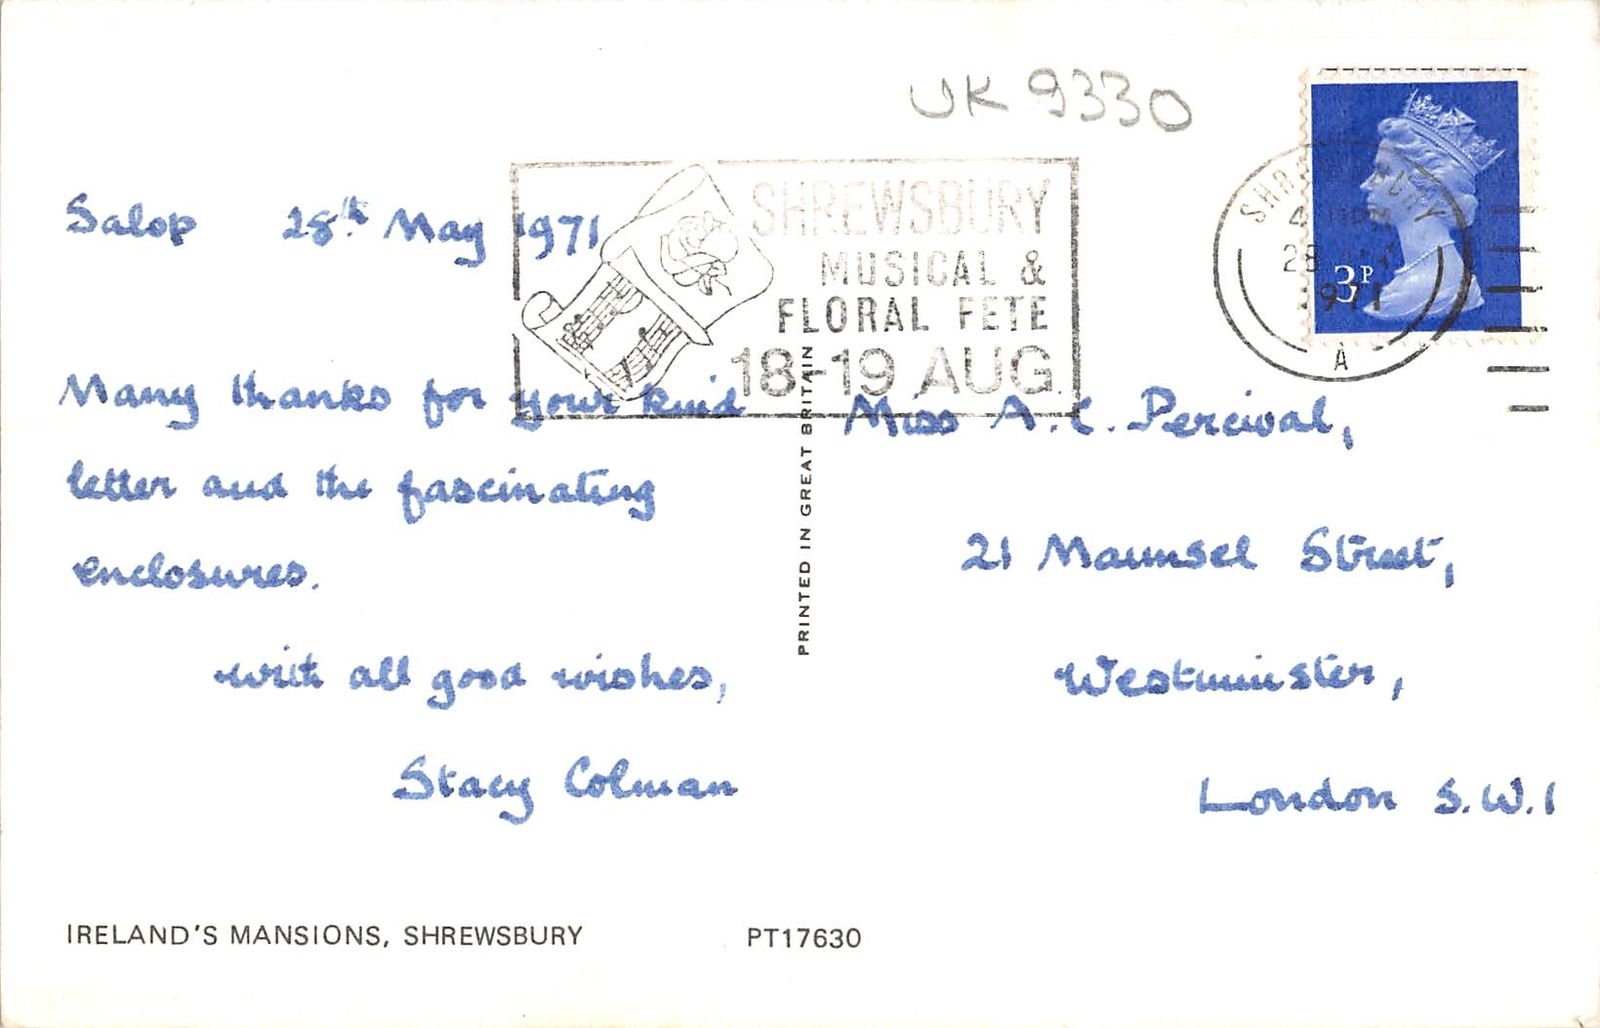 UK 9330
Salop 28th May 1971
SHREWSBURY
MUSICAL &
FLORAL FETE
18-19 AUG
SHREWSBURY
28
1971
A
3P
Many thanks for your kind
letter and the fascinating
enclosures.
with all good wishes,
Stacy Colman
PRINTED IN GREAT BRITAIN
Miss A. C. Percival,
21 Maunsel Street,
Westminster,
London S.W.1
IRELAND'S MANSIONS, SHREWSBURY PT17630